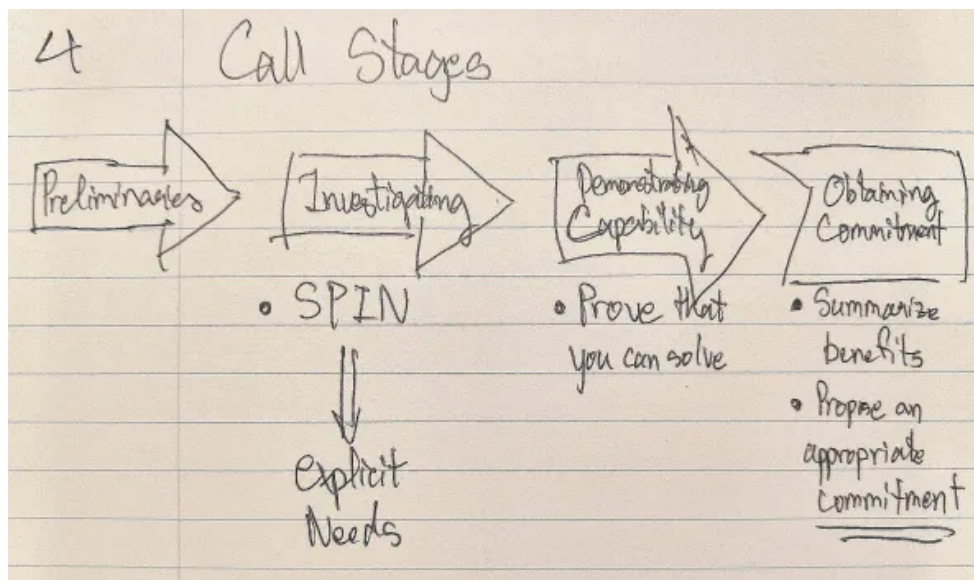 4 Call Stages
Preliminaries
Investigating
• SPIN
Explicit
Needs
Demonstrating
Capability
• Prove that
you can solve
Obtaining
Commitment
• Summarize
benefits
• Propose an
appropriate
commitment